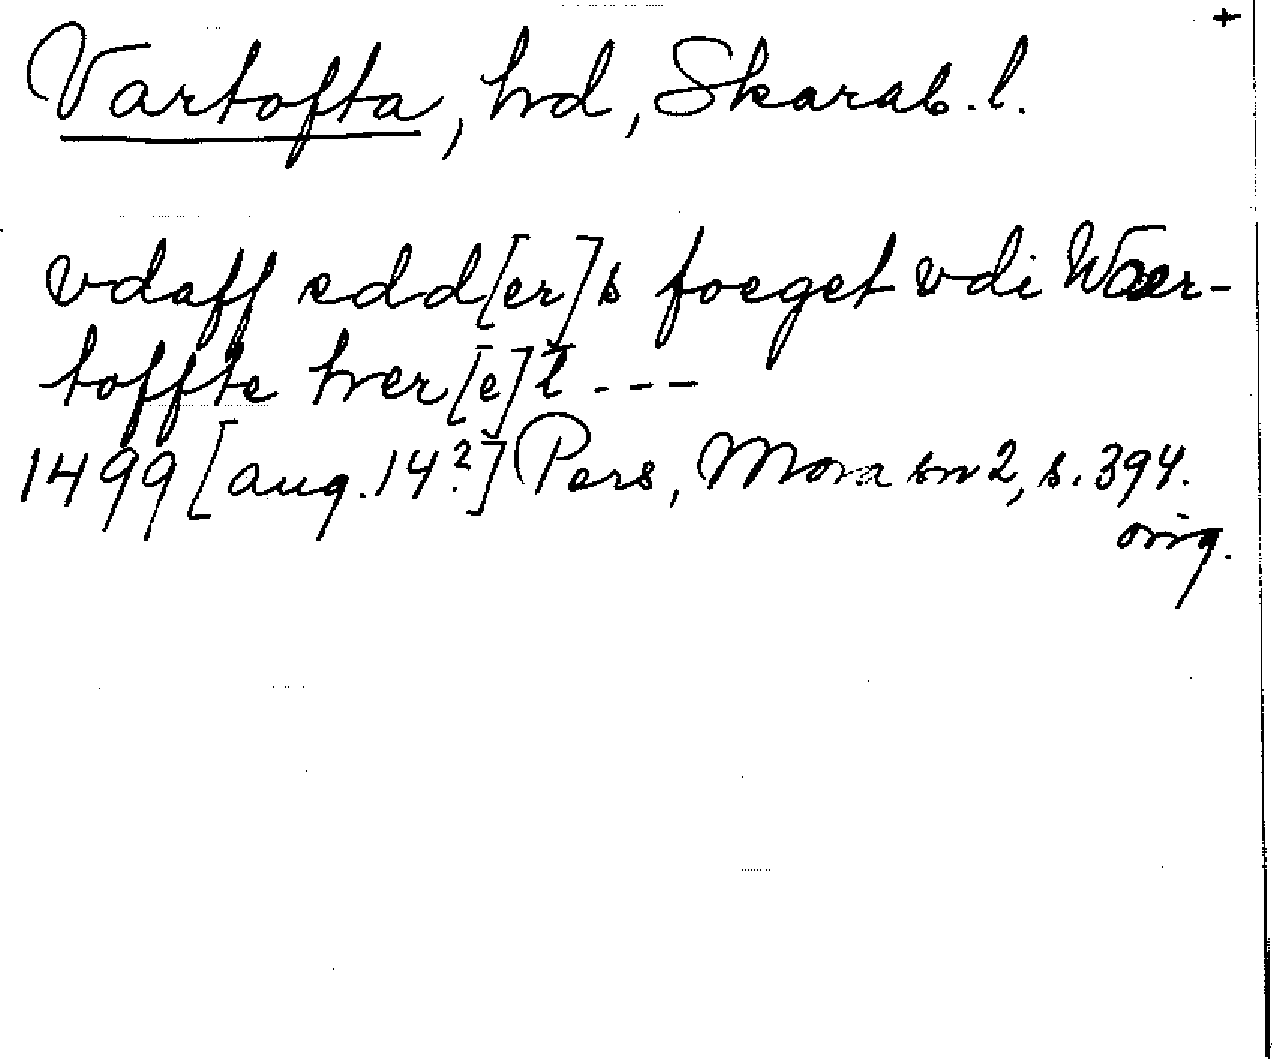 +
Vartofta, hd, Skarab. l.
vdaff edd[er]s foeget vdi Waer-
toffte her[e]t ---
1499 [aug. 14?] Pers, Mora sn 2, s. 394.
orig.